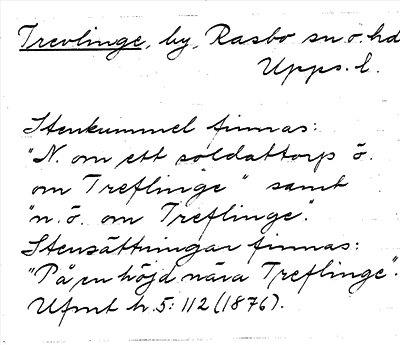 Trevlinge, by, Rasbo sn o. hd
Upps. l.
Stenkummel finnas:
"N. om ett soldattorp ö.
om Treflinge" samt
"n. ö. om Treflinge".
Stensättningar finnas:
"På en höjd nära Treflinge".
Ufmt h. 5: 112 (1876).